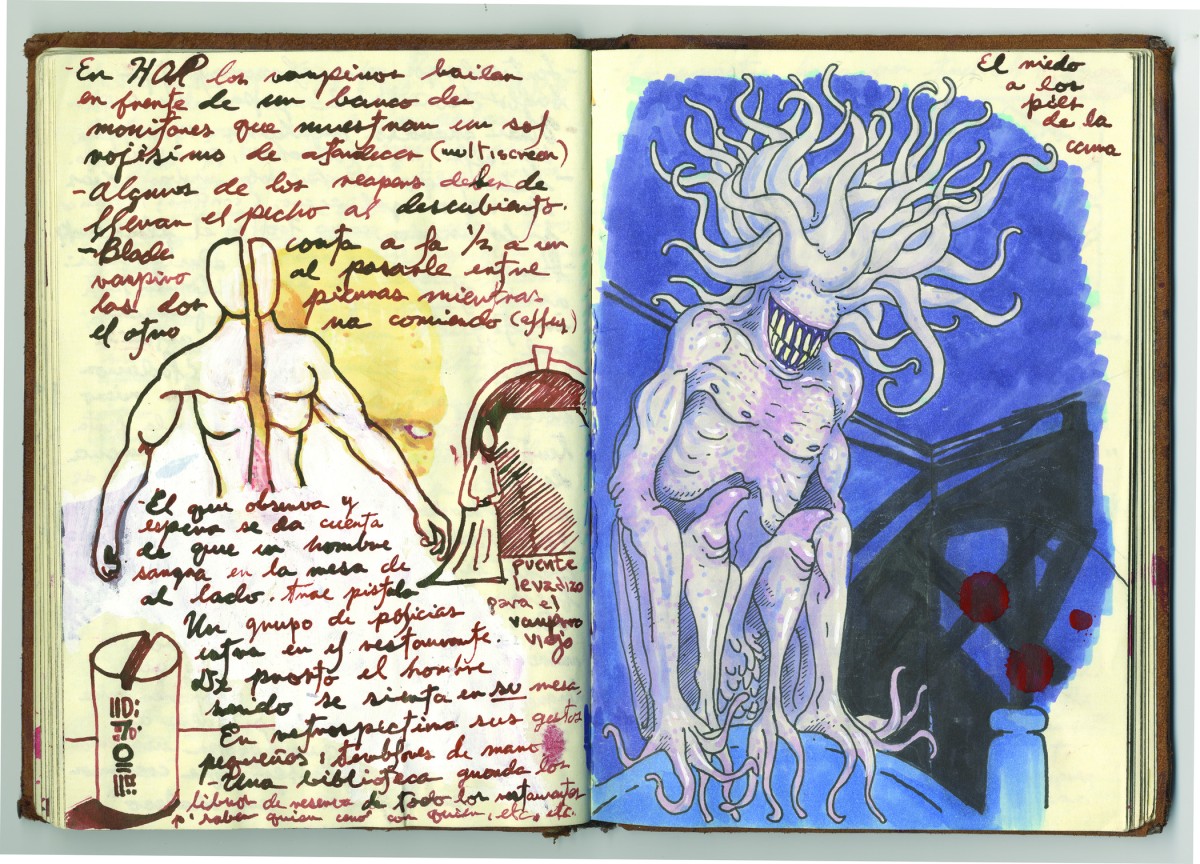 -En HOP los vampiros bailan
en frente de un banco de
monitores que muestran un sol
rojísimo de atardecer (multiscreen)
-Algunos de los reapers deben de
llevan el pecho al descubierto.
-Blade corta a la 1/2 a un
vampiro al pasarle entre
las dos piernas mientras
el otro va corriendo (effex)
-El que observa y
espera se da cuenta
de que un hombre
sangra en la mesa de
al lado. trae pistola
Un grupo de policias
entra en el restaurante.
De pronto el hombre
herido se sienta en su mesa.
En retrospectiva sus gestos
pequeños, temblores de mano
-Una biblioteca guarda los
libros de reserva de todo los restaurantes
p' saber quien cenó con quién, etc, etc.
puente
levadizo
para el
vampiro
viejo
El miedo
a los
pies
de la
cama